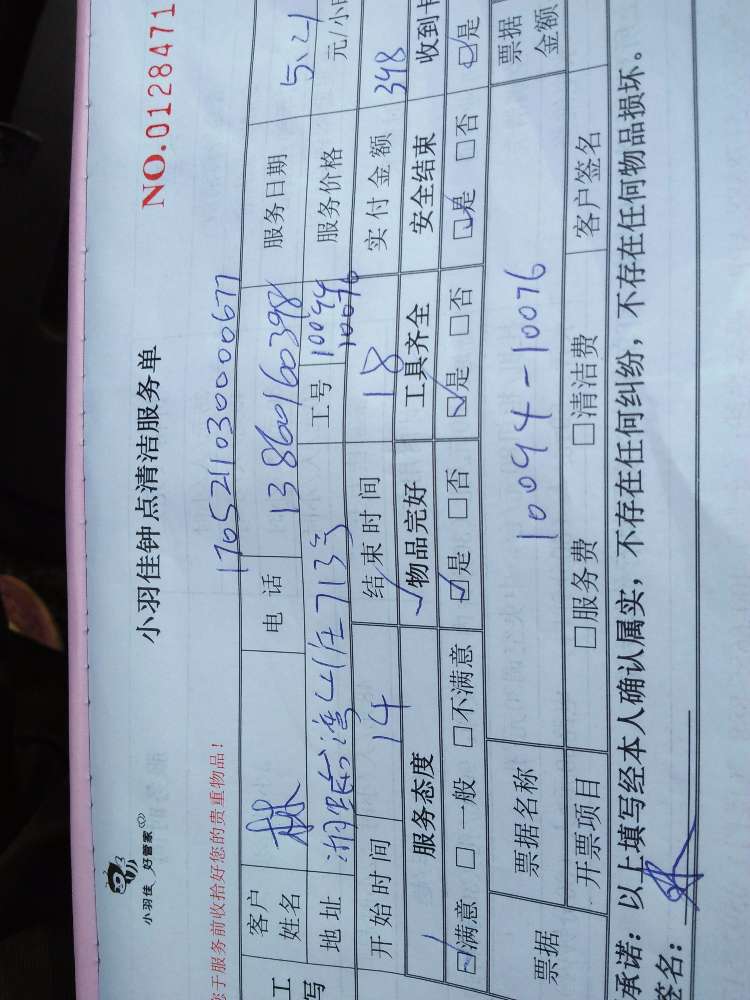 NO.0128471
小羽佳 好管家
小羽佳钟点清洁服务单
您于服务前收拾好您的贵重物品！
170521103000067
客户姓名 林 电话 13860160398 服务日期 5.21
地址 713号 工号 10094 10076 服务价格 元/小
开始时间 14 结束时间 18 实付金额 398
服务态度 物品完好 工具齐全 安全结束 收到
☑满意 □一般 □不满意 ☑是 □否 ☑是 □否 ☑是 □否 ☑是
票据 票据名称 10094-10076 票据金额
开票项目 □服务费 □清洁费 客户签名
承诺：以上填写经本人确认属实，不存在任何纠纷，不存在任何物品损坏。
签名：